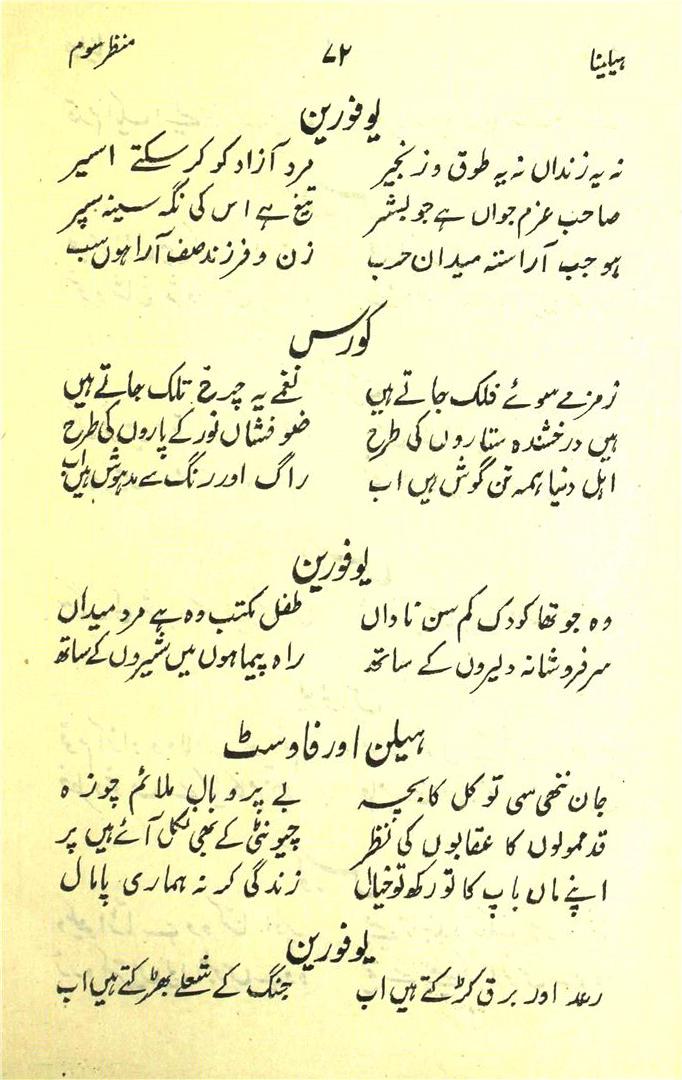 ہیلینا ۷۲ منظر سوم
یوفورین
نہ یہ زنداں نہ یہ طوق و زنجیر مرد آزاد کو کر سکتے اسیر
صاحب عزم جواں ہے جو بشر تیغ ہے اس کی نگہ سینہ سپر
ہو جب آراستہ میدان حرب زن و فرزند صف آرا ہوں سب
کورس
زمزمے سوئے فلک جاتے ہیں نغمے یہ چرخ تلک جاتے ہیں
ہیں درخشندہ ستاروں کی طرح ضو فشاں نور کے پاروں کی طرح
اہل دنیا ہمہ تن گوش ہیں اب راگ اور رنگ سے مدہوش ہیں اب
یوفورین
وہ جو تھا کودک کم سن ناداں طفل مکتب وہ ہے مرد میداں
سرفروشانہ دلیروں کے ساتھ راہ پیما ہوں میں شیروں کے ساتھ
ہیلن اور فاوسٹ
جان ننھی سی تو کل کا بچہ بے پر و بال ملائم چوزہ
قد ممولوں کا عقابوں کی نظر چیونٹی کے بھی نکل آئے ہیں پر
اپنے ماں باپ کا تو رکھ تو خیال زندگی کر نہ ہماری پامال
یوفورین
رعد اور برق کڑکتے ہیں اب جنگ کے شعلے بھڑکتے ہیں اب